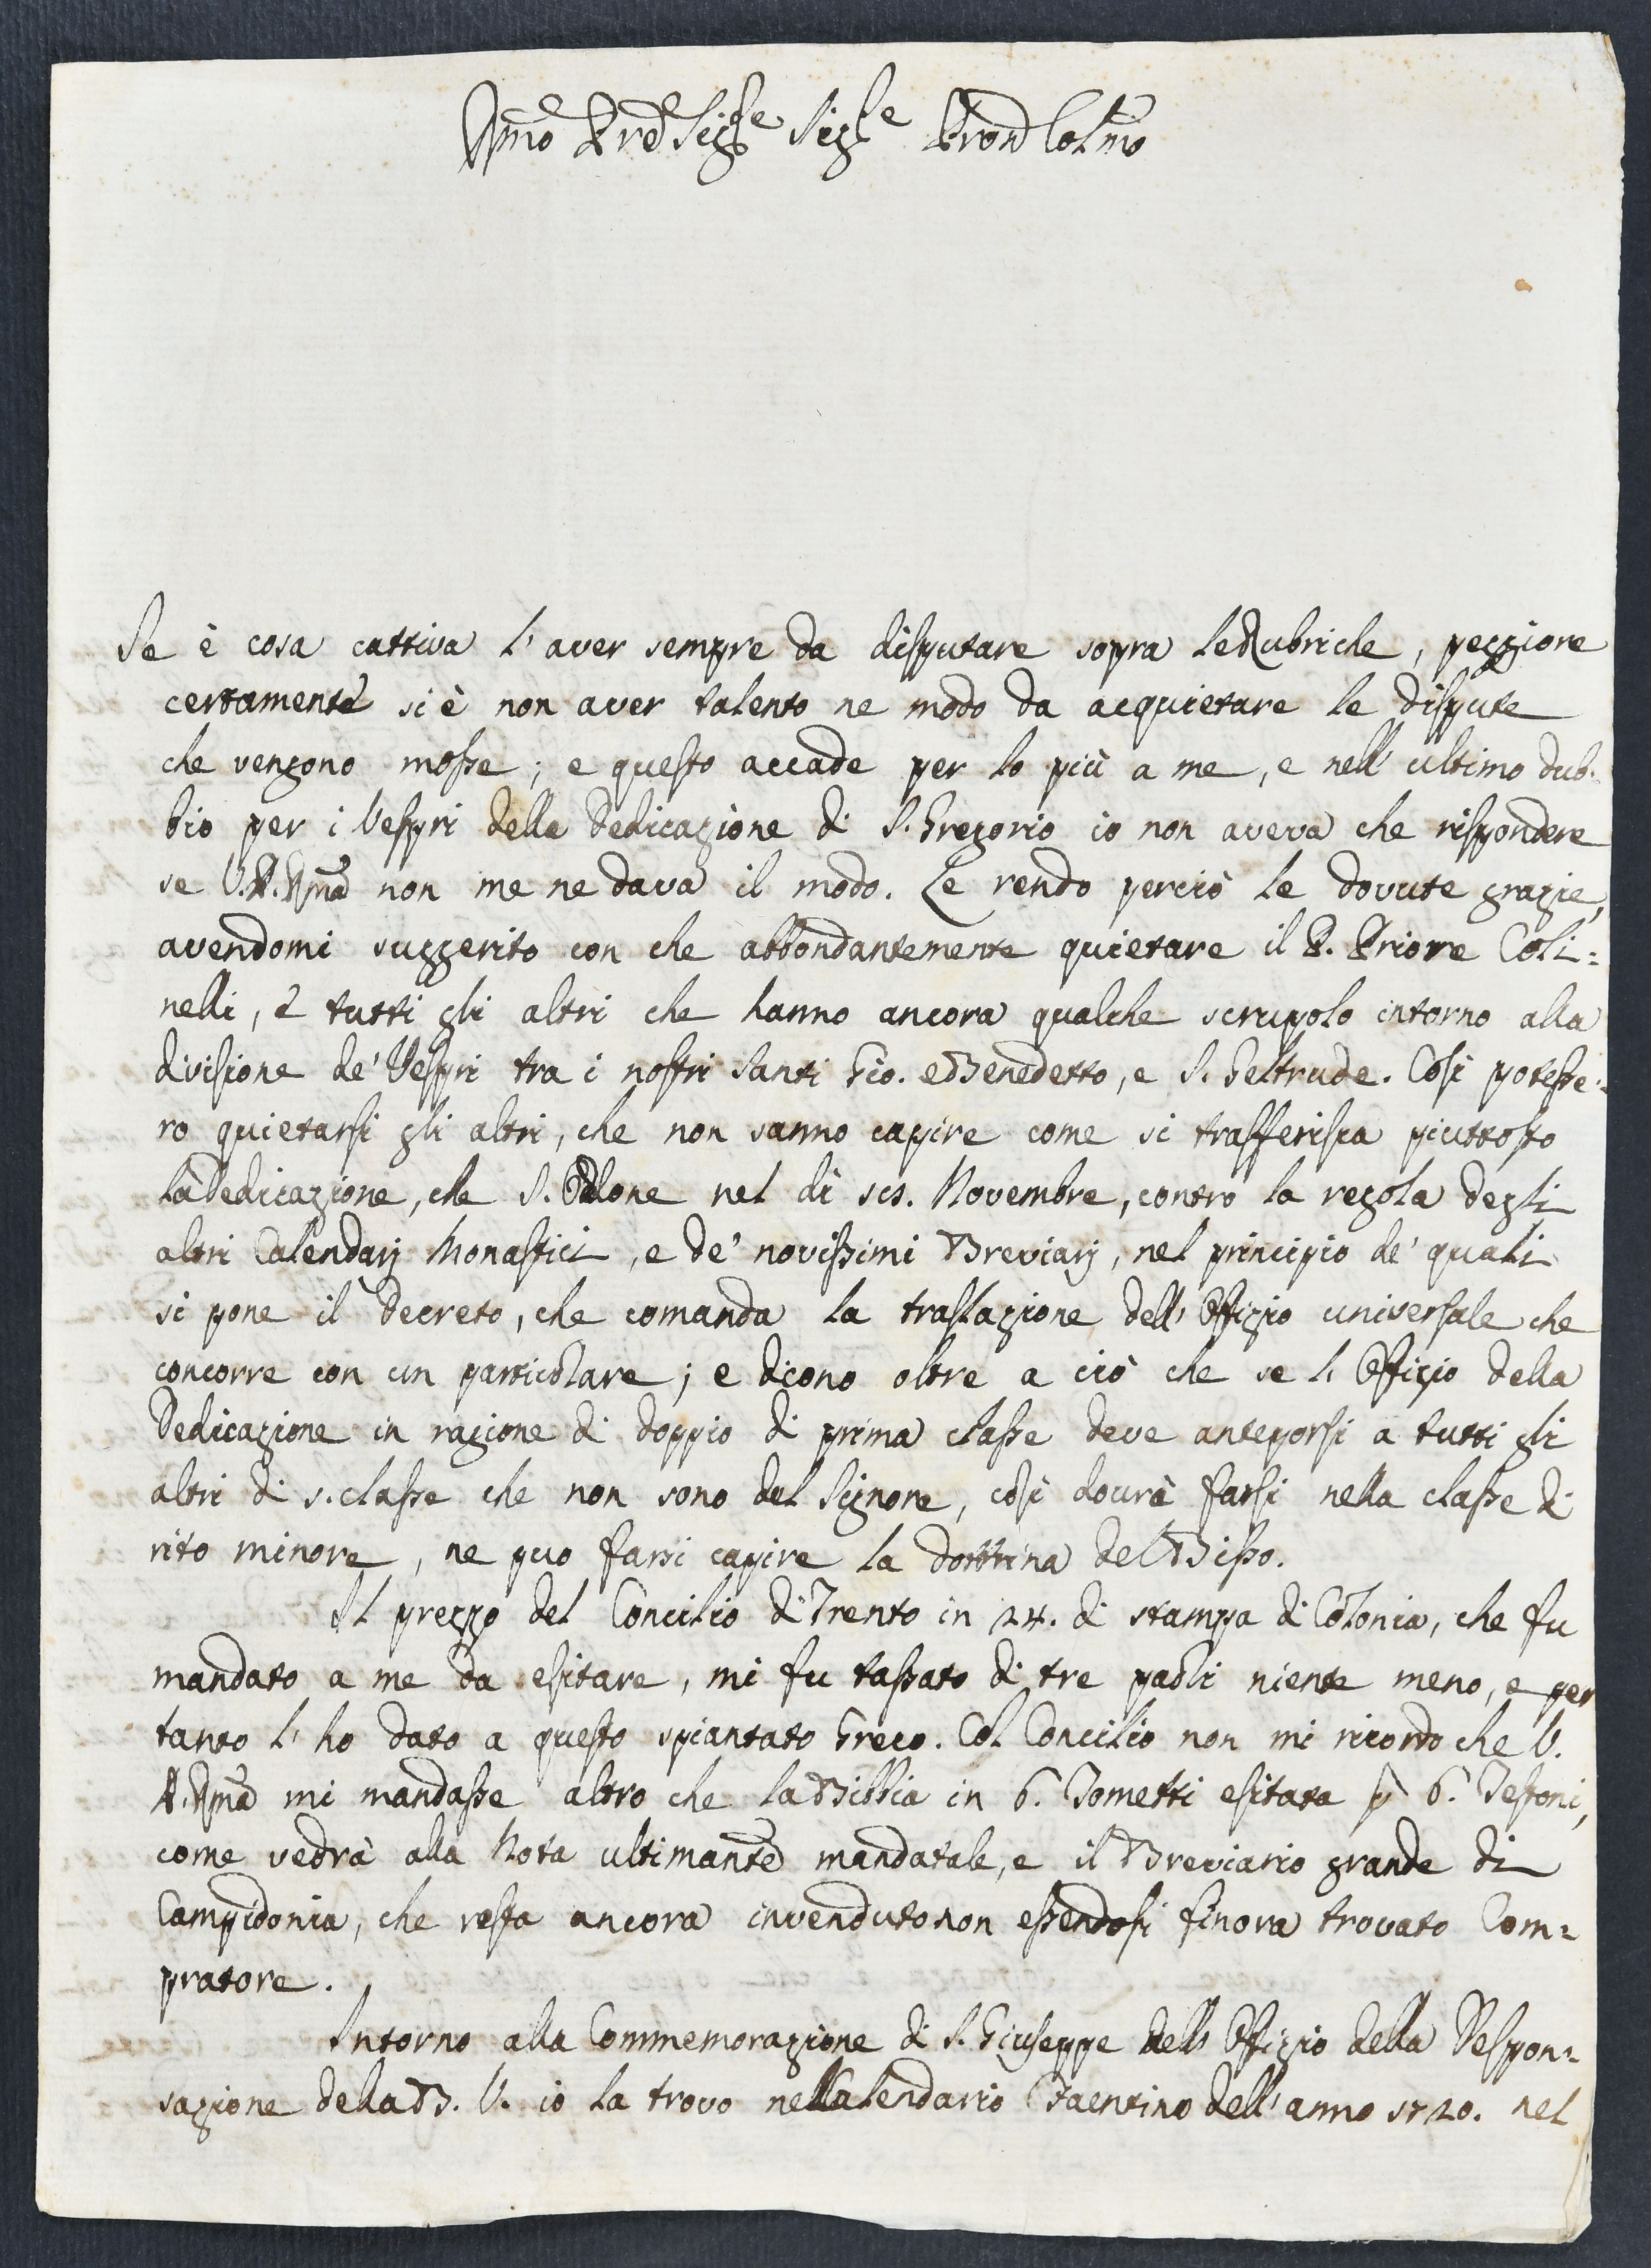 Rmo Pre Sigre Sigre Pron Colmo
Se è cosa cattiva l'aver sempre da disputare sopra le Rubriche, peggiore
certamente si è non aver talento ne modo da acquietare le dispute
che vengono mosse; e questo accade per lo più a me, e nell'ultimo dub-
bio per i Vespri della Dedicazione di S. Gregorio io non aveva che rispondere
se V. P. Rma non me ne dava il modo. Le rendo perciò le dovute grazie,
avendomi suggerito con che abbondantemente quietare il P. Priore Coli=
nelli, e tutti gli altri che hanno ancora qualche scrupolo intorno alla
divisione de' Vespri tra i nostri Santi Gio. e Benedetto, e S. Geltrude. Così potesse=
ro quietarsi gli altri, che non sanno capire come si trasferisca piuttosto
la Dedicazione, che S. Odone nel dì 18. Novembre, contro la regola degli
altri Calendarj Monastici, e de' novissimi Breviarj, nel principio de' quali
si pone il Decreto, che comanda la traslazione dell'Offizio universale che
concorre con un particolare; e dicono oltre a ciò che se l'Offizio della
Dedicazione in ragione di doppio di prima classe deve anteporsi a tutti gli
altri di 1. classe che non sono del Signore, così dovrà farsi nella classe di
rito minore, ne puo farsi capire la dottrina del Bisso.
Il prezzo del Concilio di Trento in 24. di stampa di Colonia, che fu
mandato a me da esitare, mi fu tassato di tre paoli niente meno, e per
tanto l'ho dato a questo spiantato Greco. Col Concilio non mi ricordo che V.
P. Rma mi mandasse altro che la Bibbia in 6. Tometti esitata p 6. Testoni,
come vedrà alla Nota ultimante mandatale, e il Breviario grande di
Campidonia, che resta ancora invenduto non essendosi finora trovato Com=
pratore.
Intorno alla Commemorazione di S. Giuseppe dell'Offizio della Despon=
sazione della B. V. io la trovo nel Calendario Faentino dell'anno 1720. nel